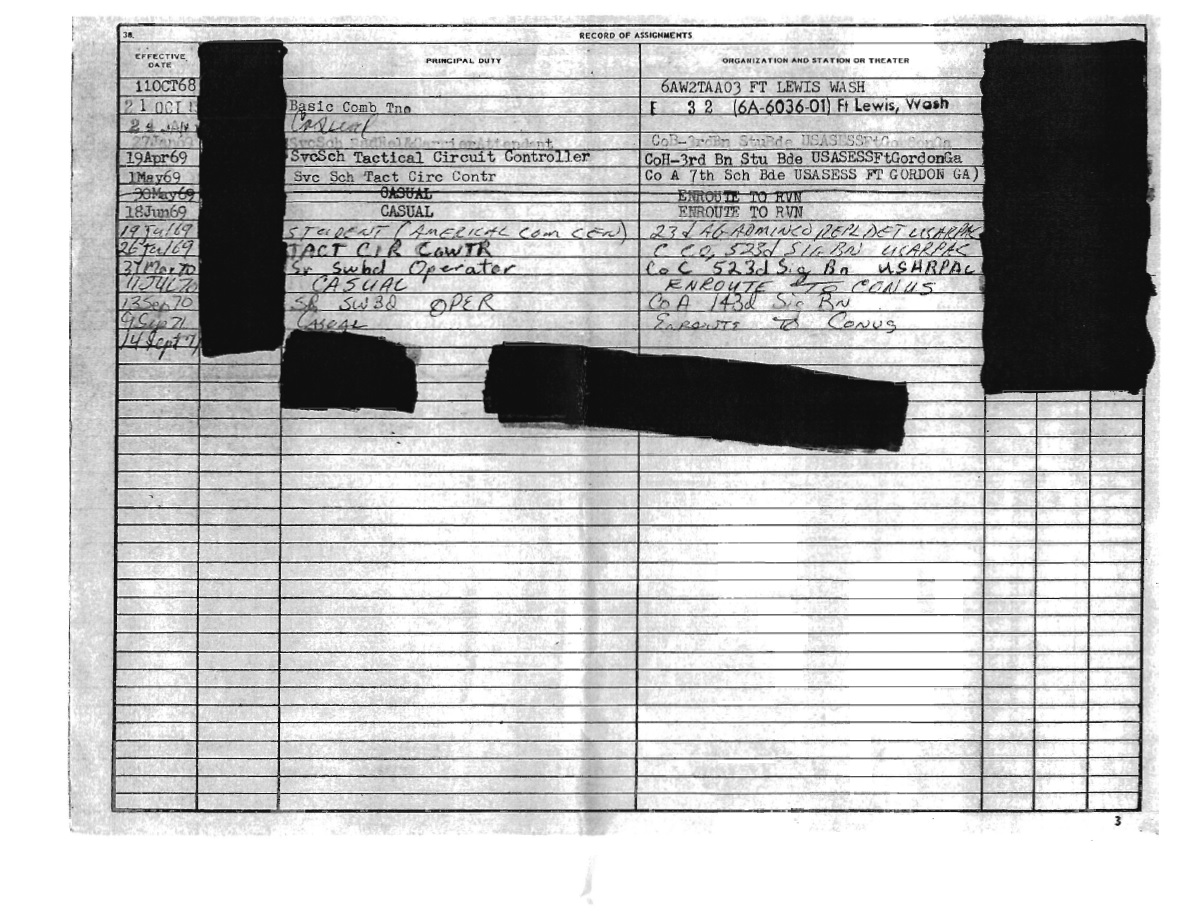 38. RECORD OF ASSIGNMENTS
EFFECTIVE DATE PRINCIPAL DUTY ORGANIZATION AND STATION OR THEATER
11OCT68 6AW2TAA03 FT LEWIS WASH
21 OCT Basic Comb Tng E 32 (6A-6036-01) Ft Lewis, Wash
24 JAN Casual
27Jan SvcSch CoB-3rdBn StuBde USASESSFtGordonGa
19Apr69 SvcSch Tactical Circuit Controller CoH-3rd Bn Stu Bde USASESSFtGordonGa
1May69 Svc Sch Tact Circ Contr Co A 7th Sch Bde USASESS FT GORDON GA)
30May69 CASUAL ENROUTE TO RVN
18Jun69 CASUAL ENROUTE TO RVN
19Jul69 STUDENT (AMERICAL COM CEN) 23d AG ADMINCO REPL DET USARPAC
26Jul69 TACT CIR CONTR C CO, 523d SIG BN USARPAC
31Mar70 Sr Swbd Operator Co C 523d Sig Bn USARPAC
11JUL70 CASUAL ENROUTE TO CONUS
13Sep70 SR SWBD OPER Co A 143d Sig Bn
9Sep71 CASUAL ENROUTE TO CONUS
14Sept7
3